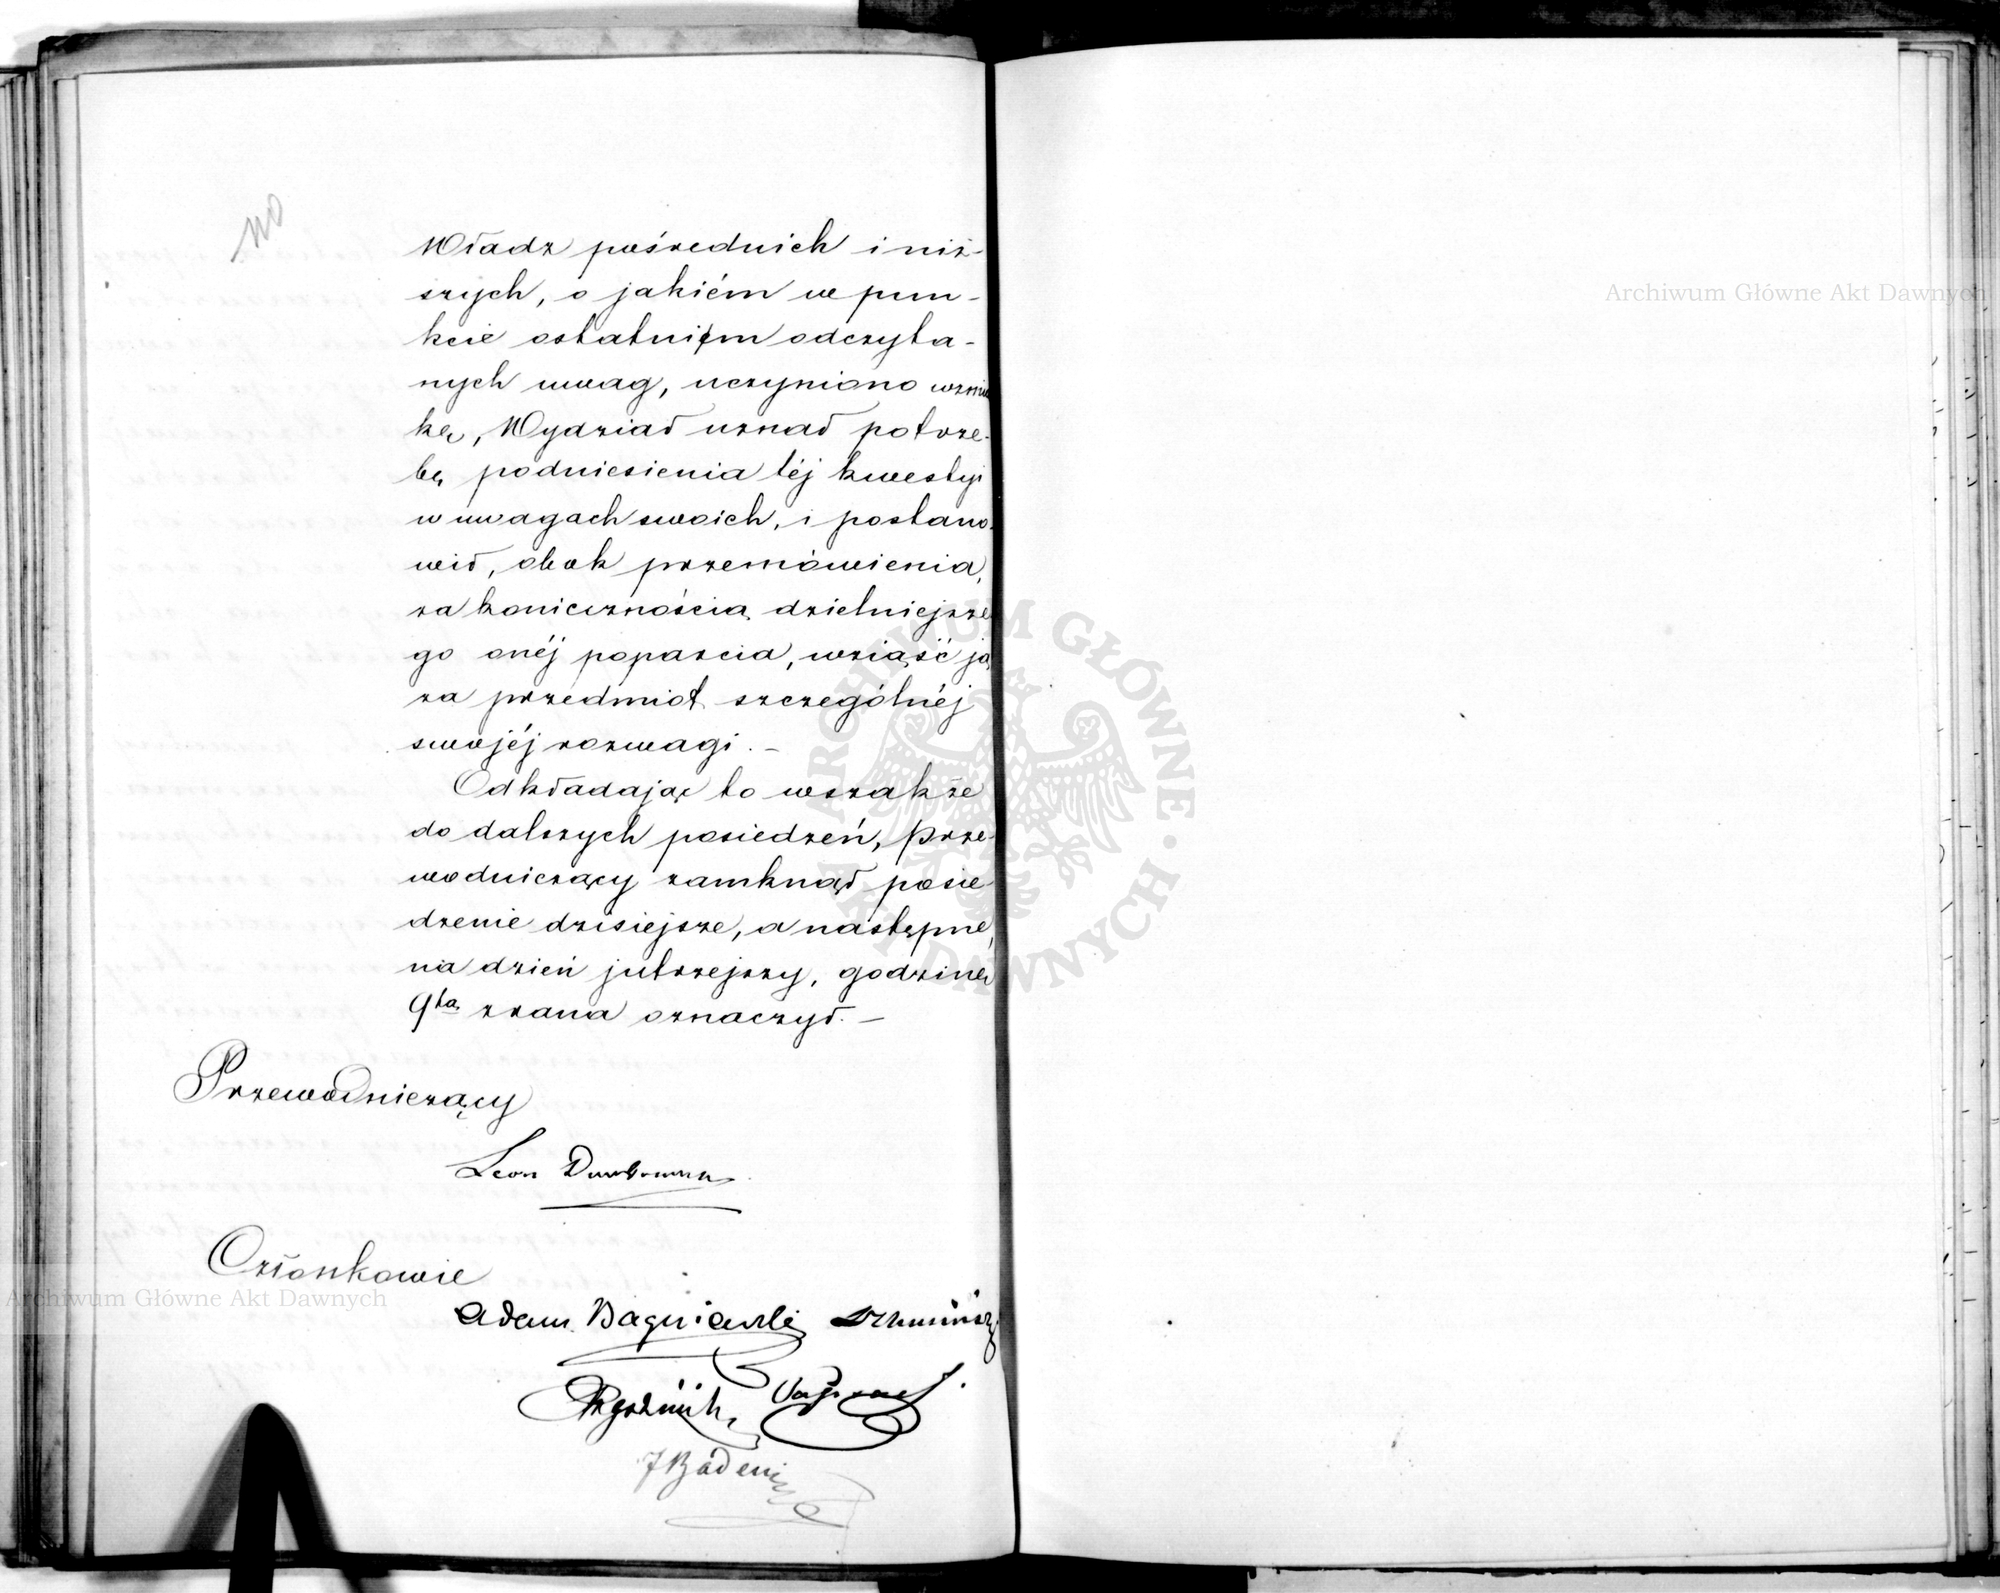 Władz pośrednich i niż-
szych, o jakiém w pun-
kcie ostatnim odczyta-
nych uwag, uczyniono wzmian
kę, Wydział uznał potrze-
bę podniesienia téj kwestyi
w uwagach swoich, i postano-
wił, obok przemówienia,
za koniecznością dzielniejsze
go onéj poparcia, wziąść ją
za przedmiot szczególnéj
swojéj rozwagi. –
Odkładając to wszakże
do dalszych posiedzeń, Prze-
wodniczący zamknął posie-
dzenie dzisiejsze, a następne,
na dzień jutrzejszy, godzinę
9tą zrana oznaczył. –
Przewodniczący
Leon Dembowski
Członkowie
Adam Bagniewski
J Badeni
Archiwum Główne Akt Dawnych
Archiwum Główne Akt Dawnych
ARCHIWUM GŁÓWNE AKT DAWNYCH